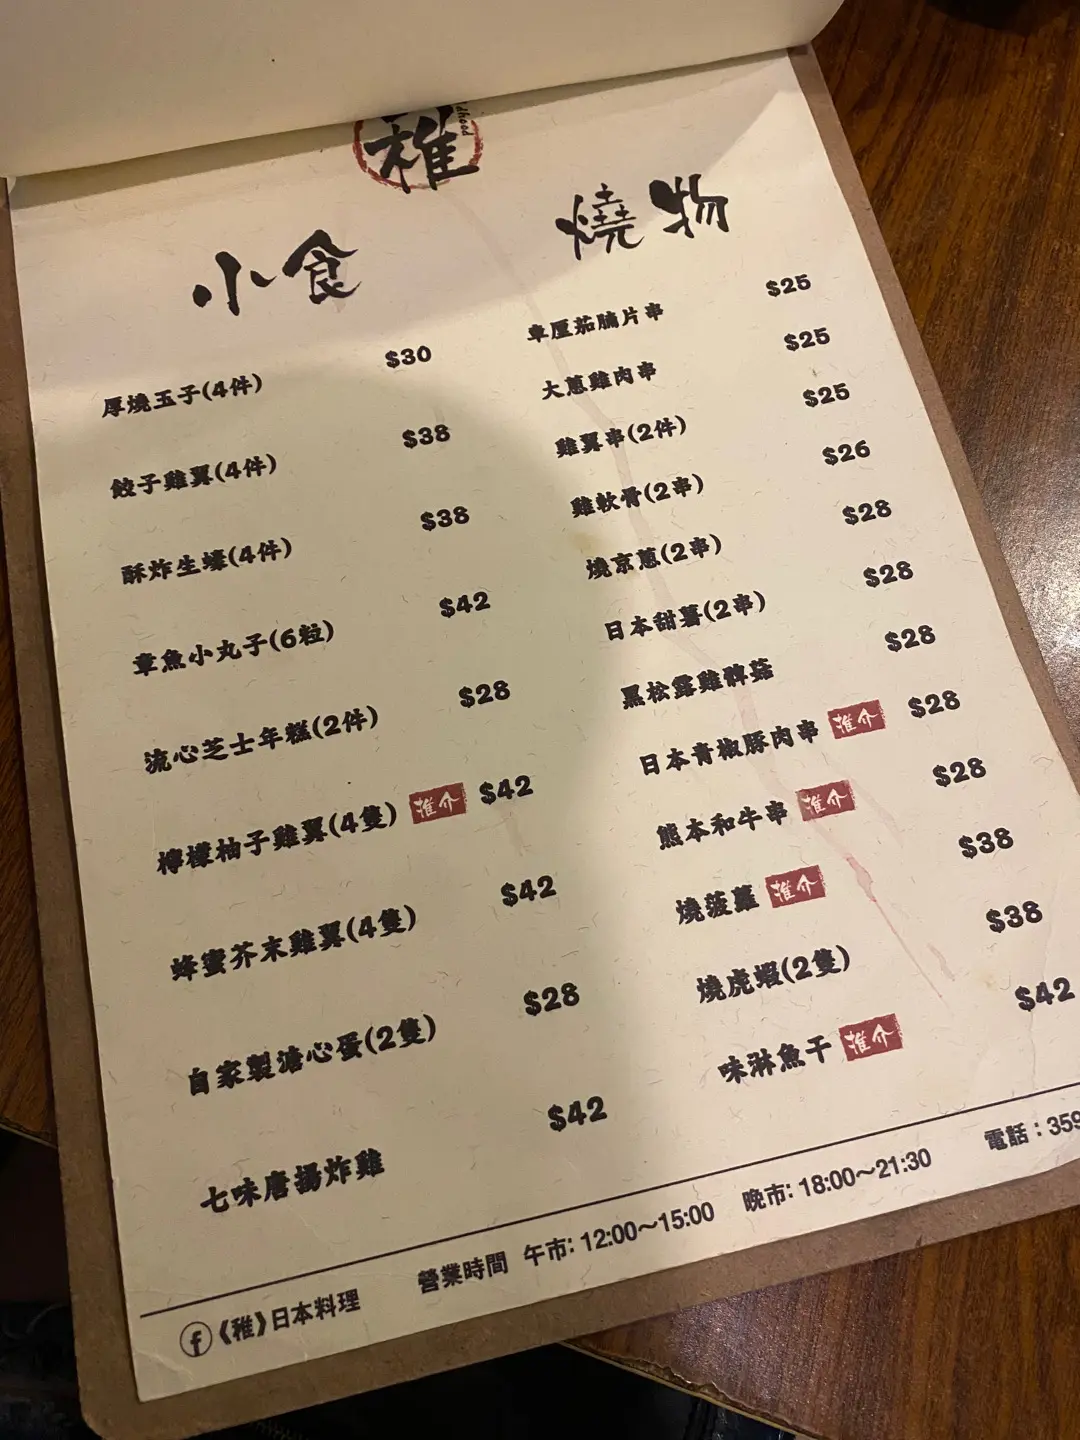 稚
小食
厚燒玉子(4件) $30
餃子雞翼(4件) $38
酥炸生蠔(4件) $38
章魚小丸子(6粒) $42
流心芝士年糕(2件) $28
檸檬柚子雞翼(4隻) 推介 $42
蜂蜜芥末雞翼(4隻) $42
自家製溏心蛋(2隻) $28
七味唐揚炸雞 $42
燒物
車厘茄腩片串 $25
大蔥雞肉串 $25
雞翼串(2件) $25
雞軟骨(2串) $26
燒京蔥(2串) $28
日本甜薯(2串) $28
黑松露雞髀菇 $28
日本青椒豚肉串 推介 $28
熊本和牛串 推介 $28
燒菠蘿 推介 $38
燒虎蝦(2隻) $38
味淋魚干 推介 $42
《稚》日本料理 營業時間 午市: 12:00~15:00 晚市: 18:00~21:30 電話：359